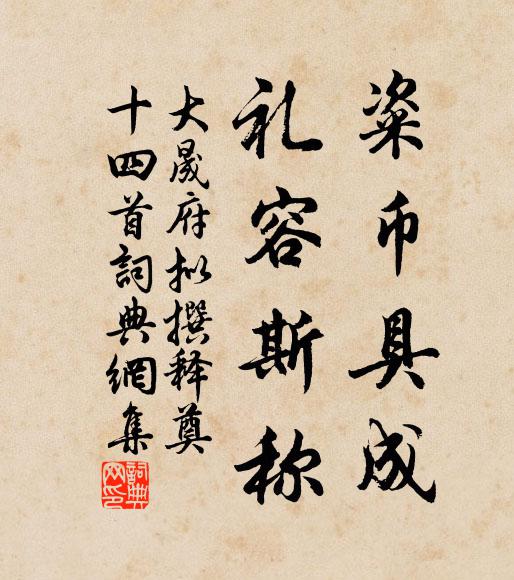 粢币具成
礼容斯称
大晟府拟撰释奠
十四首词典網集
詞典网印